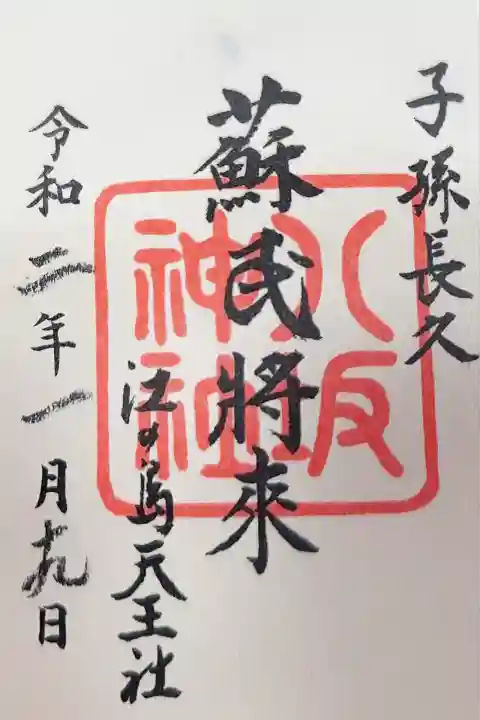 子孫長久
蘇民將來
江の島天王社
令和二年一月九日
八坂
神社